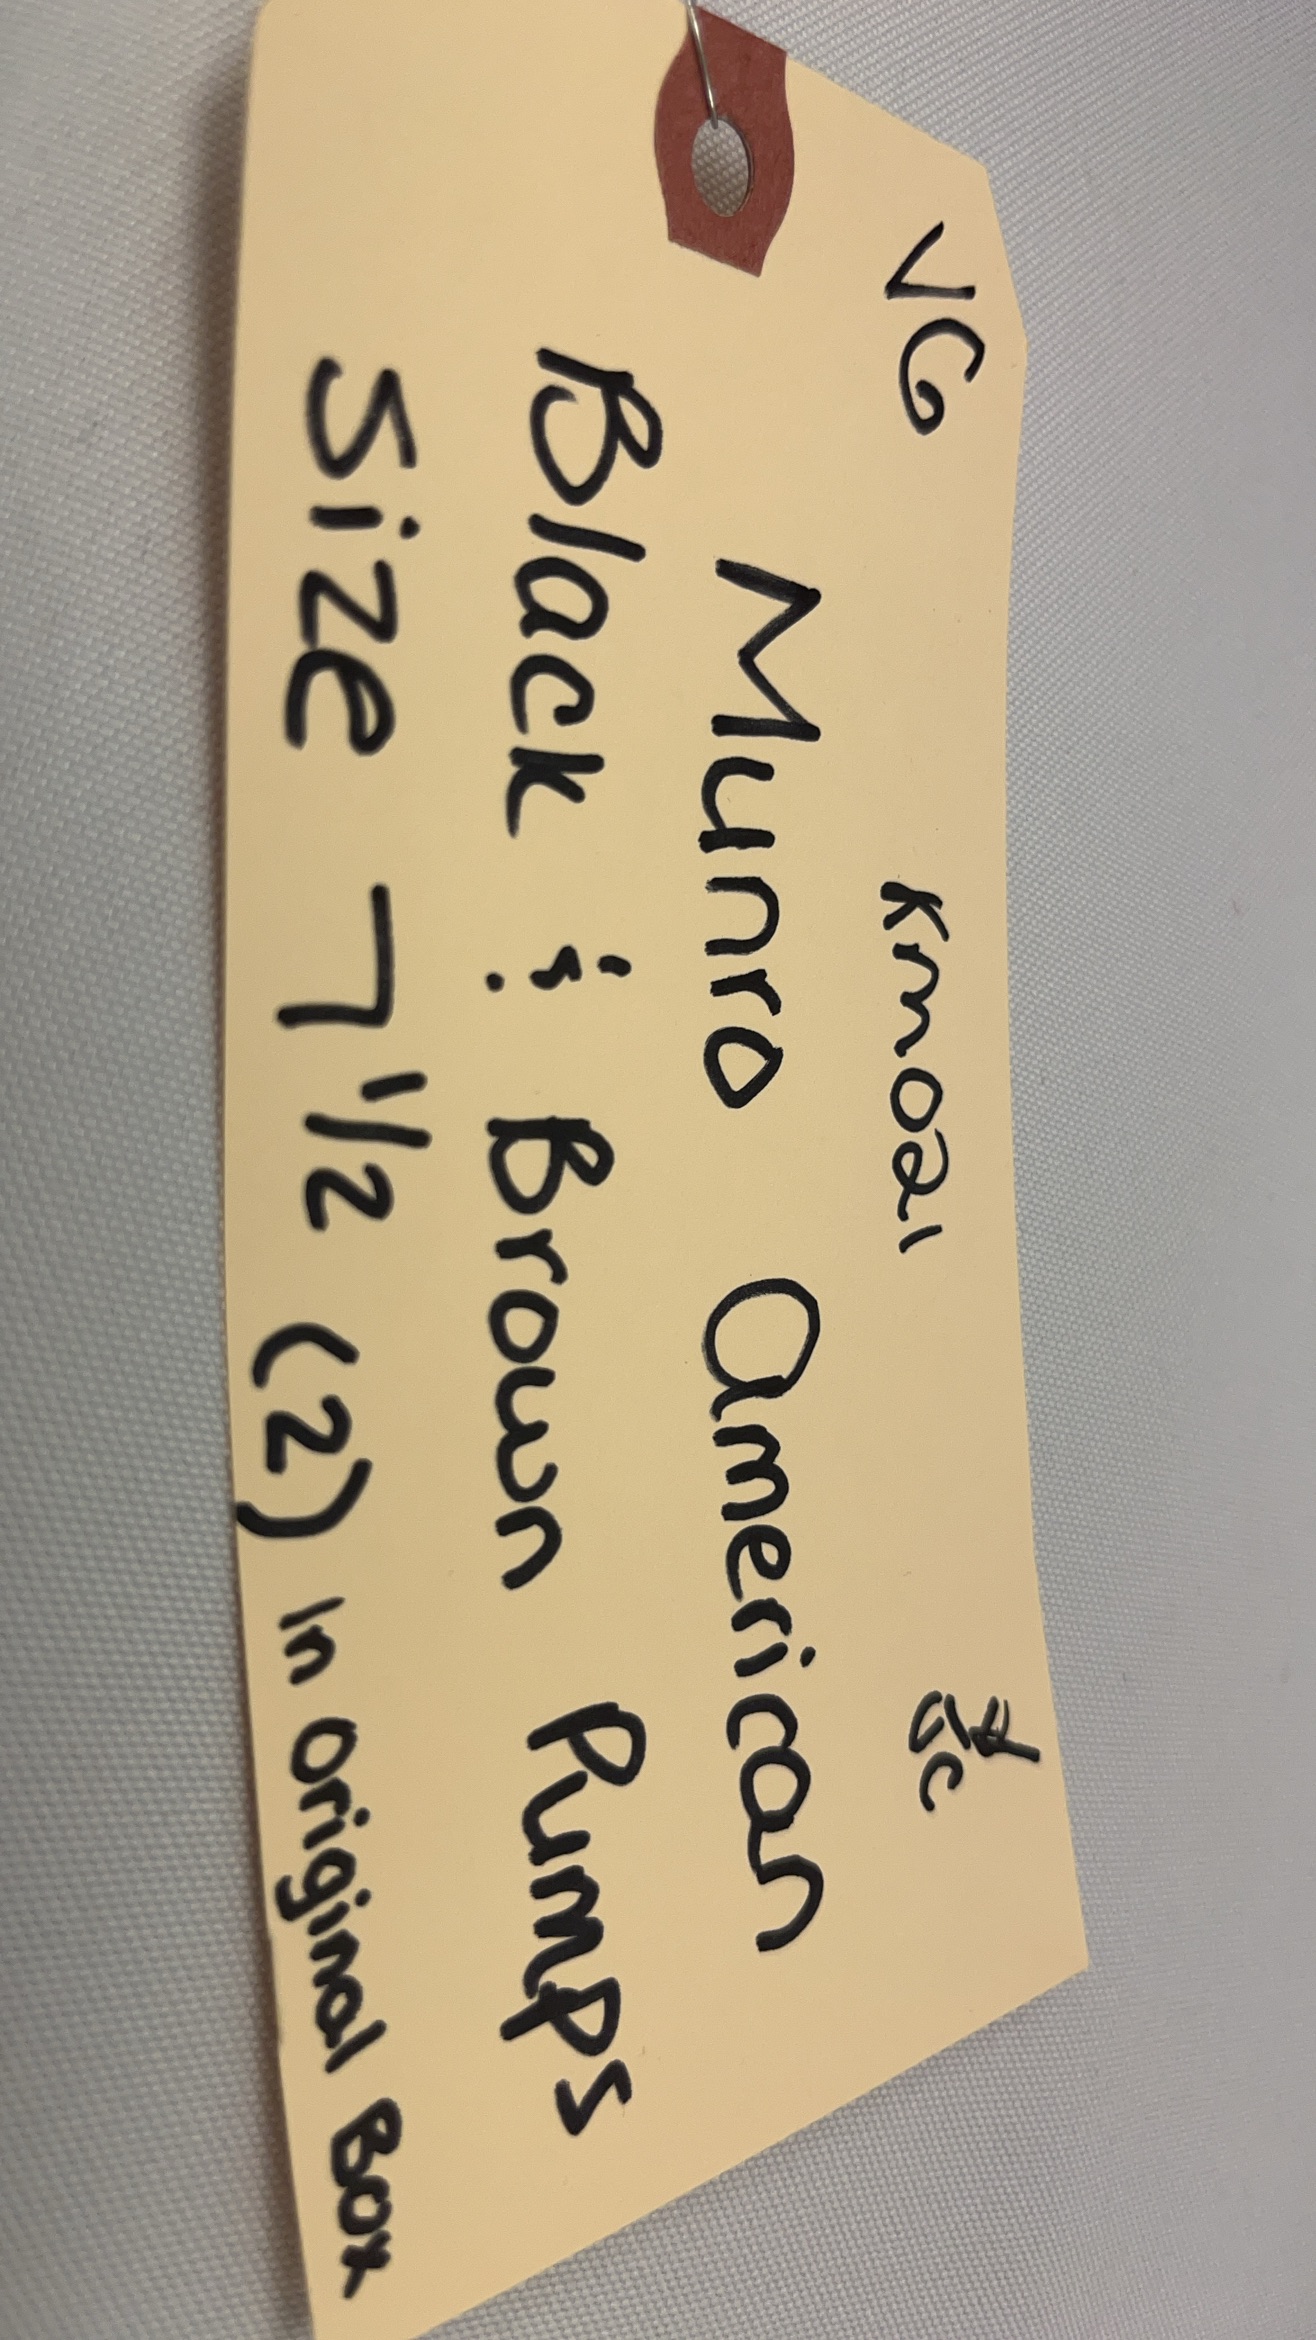 VG Km021
Munro American
Black & Brown Pumps
Size 7 1/2 (2) In original Box